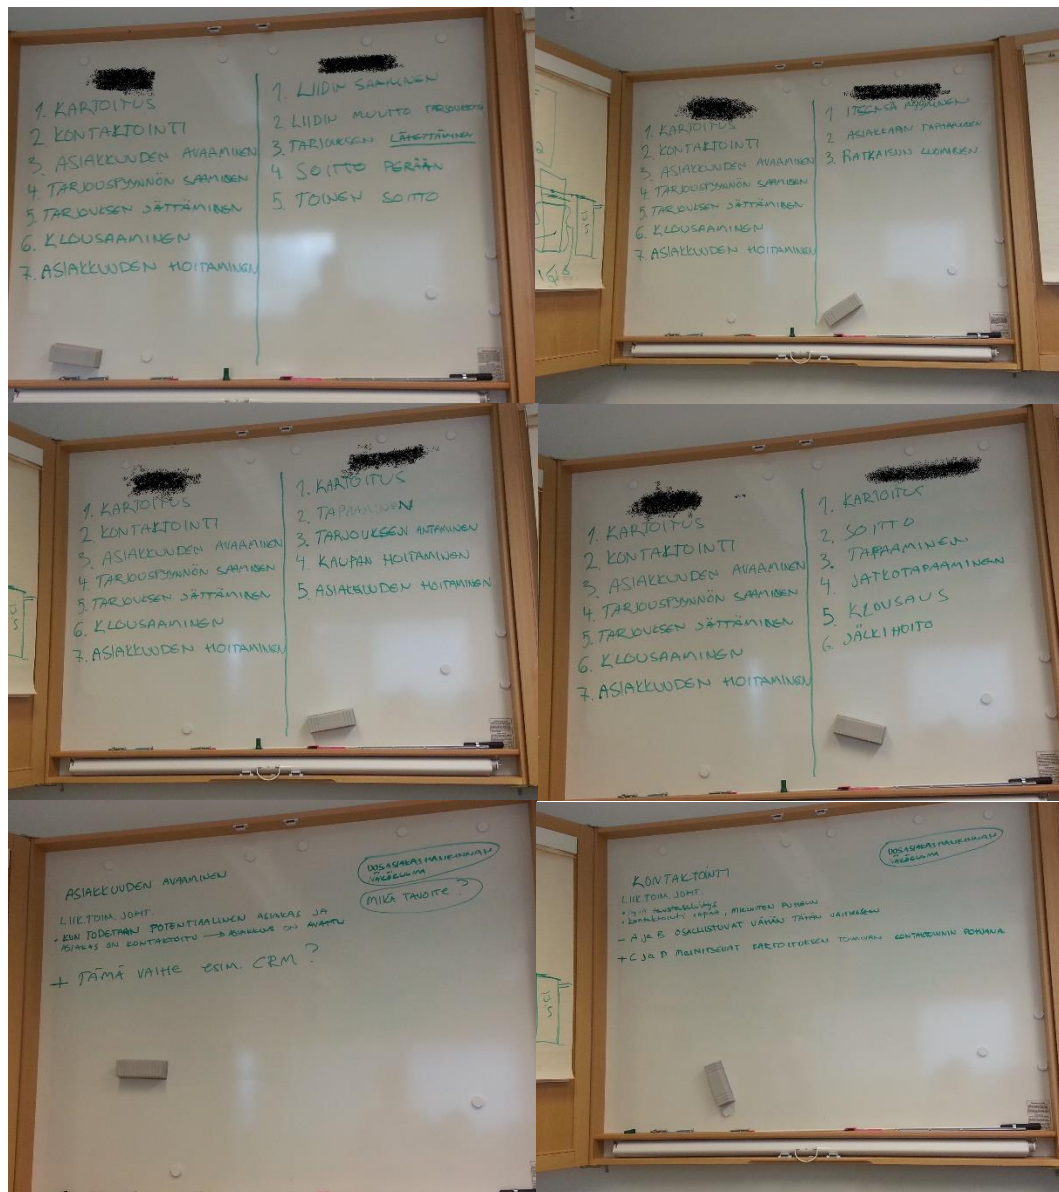 1. KARTOITUS
2. KONTAKTOINTI
3. ASIAKKUUDEN AVAAMINEN
4. TARJOUSPYYNNÖN SAAMINEN
5. TARJOUKSEN JÄTTÄMINEN
6. KLOUSAAMINEN
7. ASIAKKUUDEN HOITAMINEN
1. LIIDIN SAAMINEN
2. LIIDIN MUUTTO
3. TARJOUKSEN LÄHETTÄMINEN
4. SOITTO PERÄÄN
5. TOINEN SOITTO
1. KARTOITUS
2. KONTAKTOINTI
3. ASIAKKUUDEN AVAAMINEN
4. TARJOUSPYYNNÖN SAAMINEN
5. TARJOUKSEN JÄTTÄMINEN
6. KLOUSAAMINEN
7. ASIAKKUUDEN HOITAMINEN
1 ITSENSÄ MYYMINEN
2 ASIAKKAAN TAPAAMINEN
3. RATKAISUN LUOMINEN
1. KARTOITUS
2. KONTAKTOINTI
3. ASIAKKUUDEN AVAAMINEN
4. TARJOUSPYYNNÖN SAAMINEN
5. TARJOUKSEN JÄTTÄMINEN
6. KLOUSAAMINEN
7. ASIAKKUUDEN HOITAMINEN
1. KARTOITUS
2. TAPAAMINEN
3. TARJOUKSEN ANTAMINEN
4. KAUPAN HOITAMINEN
5. ASIAKKUUDEN HOITAMINEN
1. KARTOITUS
2. KONTAKTOINTI
3. ASIAKKUUDEN AVAAMINEN
4. TARJOUSPYYNNÖN SAAMINEN
5. TARJOUKSEN JÄTTÄMINEN
6. KLOUSAAMINEN
7. ASIAKKUUDEN HOITAMINEN
1. KARTOITUS
2. SOITTO
3. TAPAAMINEN
4. JATKOTAPAAMINEN
5. KLOUSAUS
6. JÄLKIHOITO
ASIAKKUUDEN AVAAMINEN
UUSASIAKASHANKINNAN
NÄKÖKULMA
MIKÄ TAVOITE?
LIIKTOIM. JOHT.
• KUN TODETAAN POTENTIAALINEN ASIAKAS JA
ASIAKAS ON KONTAKTOITU → ASIAKKUUS ON AVATTU
+ TÄMÄ VAIHE esim. CRM?
KONTAKTOINTI
UUSASIAKASHANKINNAN
NÄKÖKULMA
LIIKTOIM. JOHT.
• kontaktointi nopea, MIELUITEN PUHELIN
- A ja B OSALLISTUVAT VÄHÄN TÄHÄN VAIHEESEEN
+ C ja D MAINITSEVAT KARTOITUKSEN TOIMIVAN KONTAKTOINNIN POHJANA